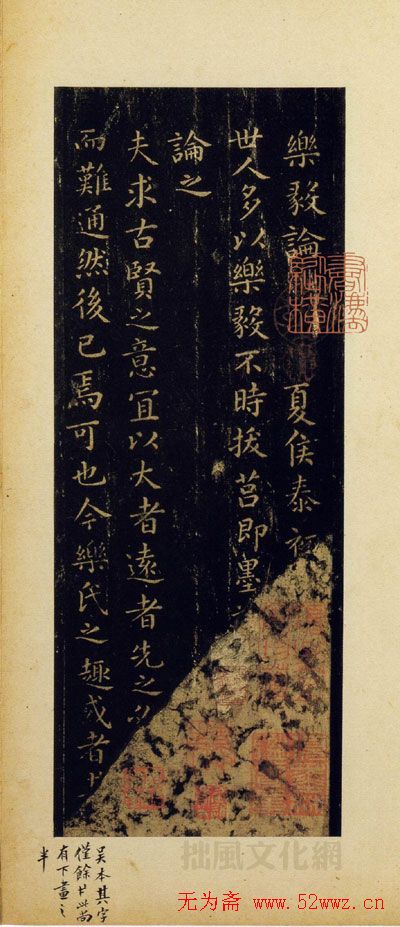 樂毅論 夏侯泰初
世人多以樂毅不時拔莒即墨
論之
夫求古賢之意宜以大者遠者先之必
而難通然後已焉可也今樂氏之趣或者
吳本其字
僅餘廿此尚
有下畫之
半
拙風文化網
无为斋 www.52wwz.cn